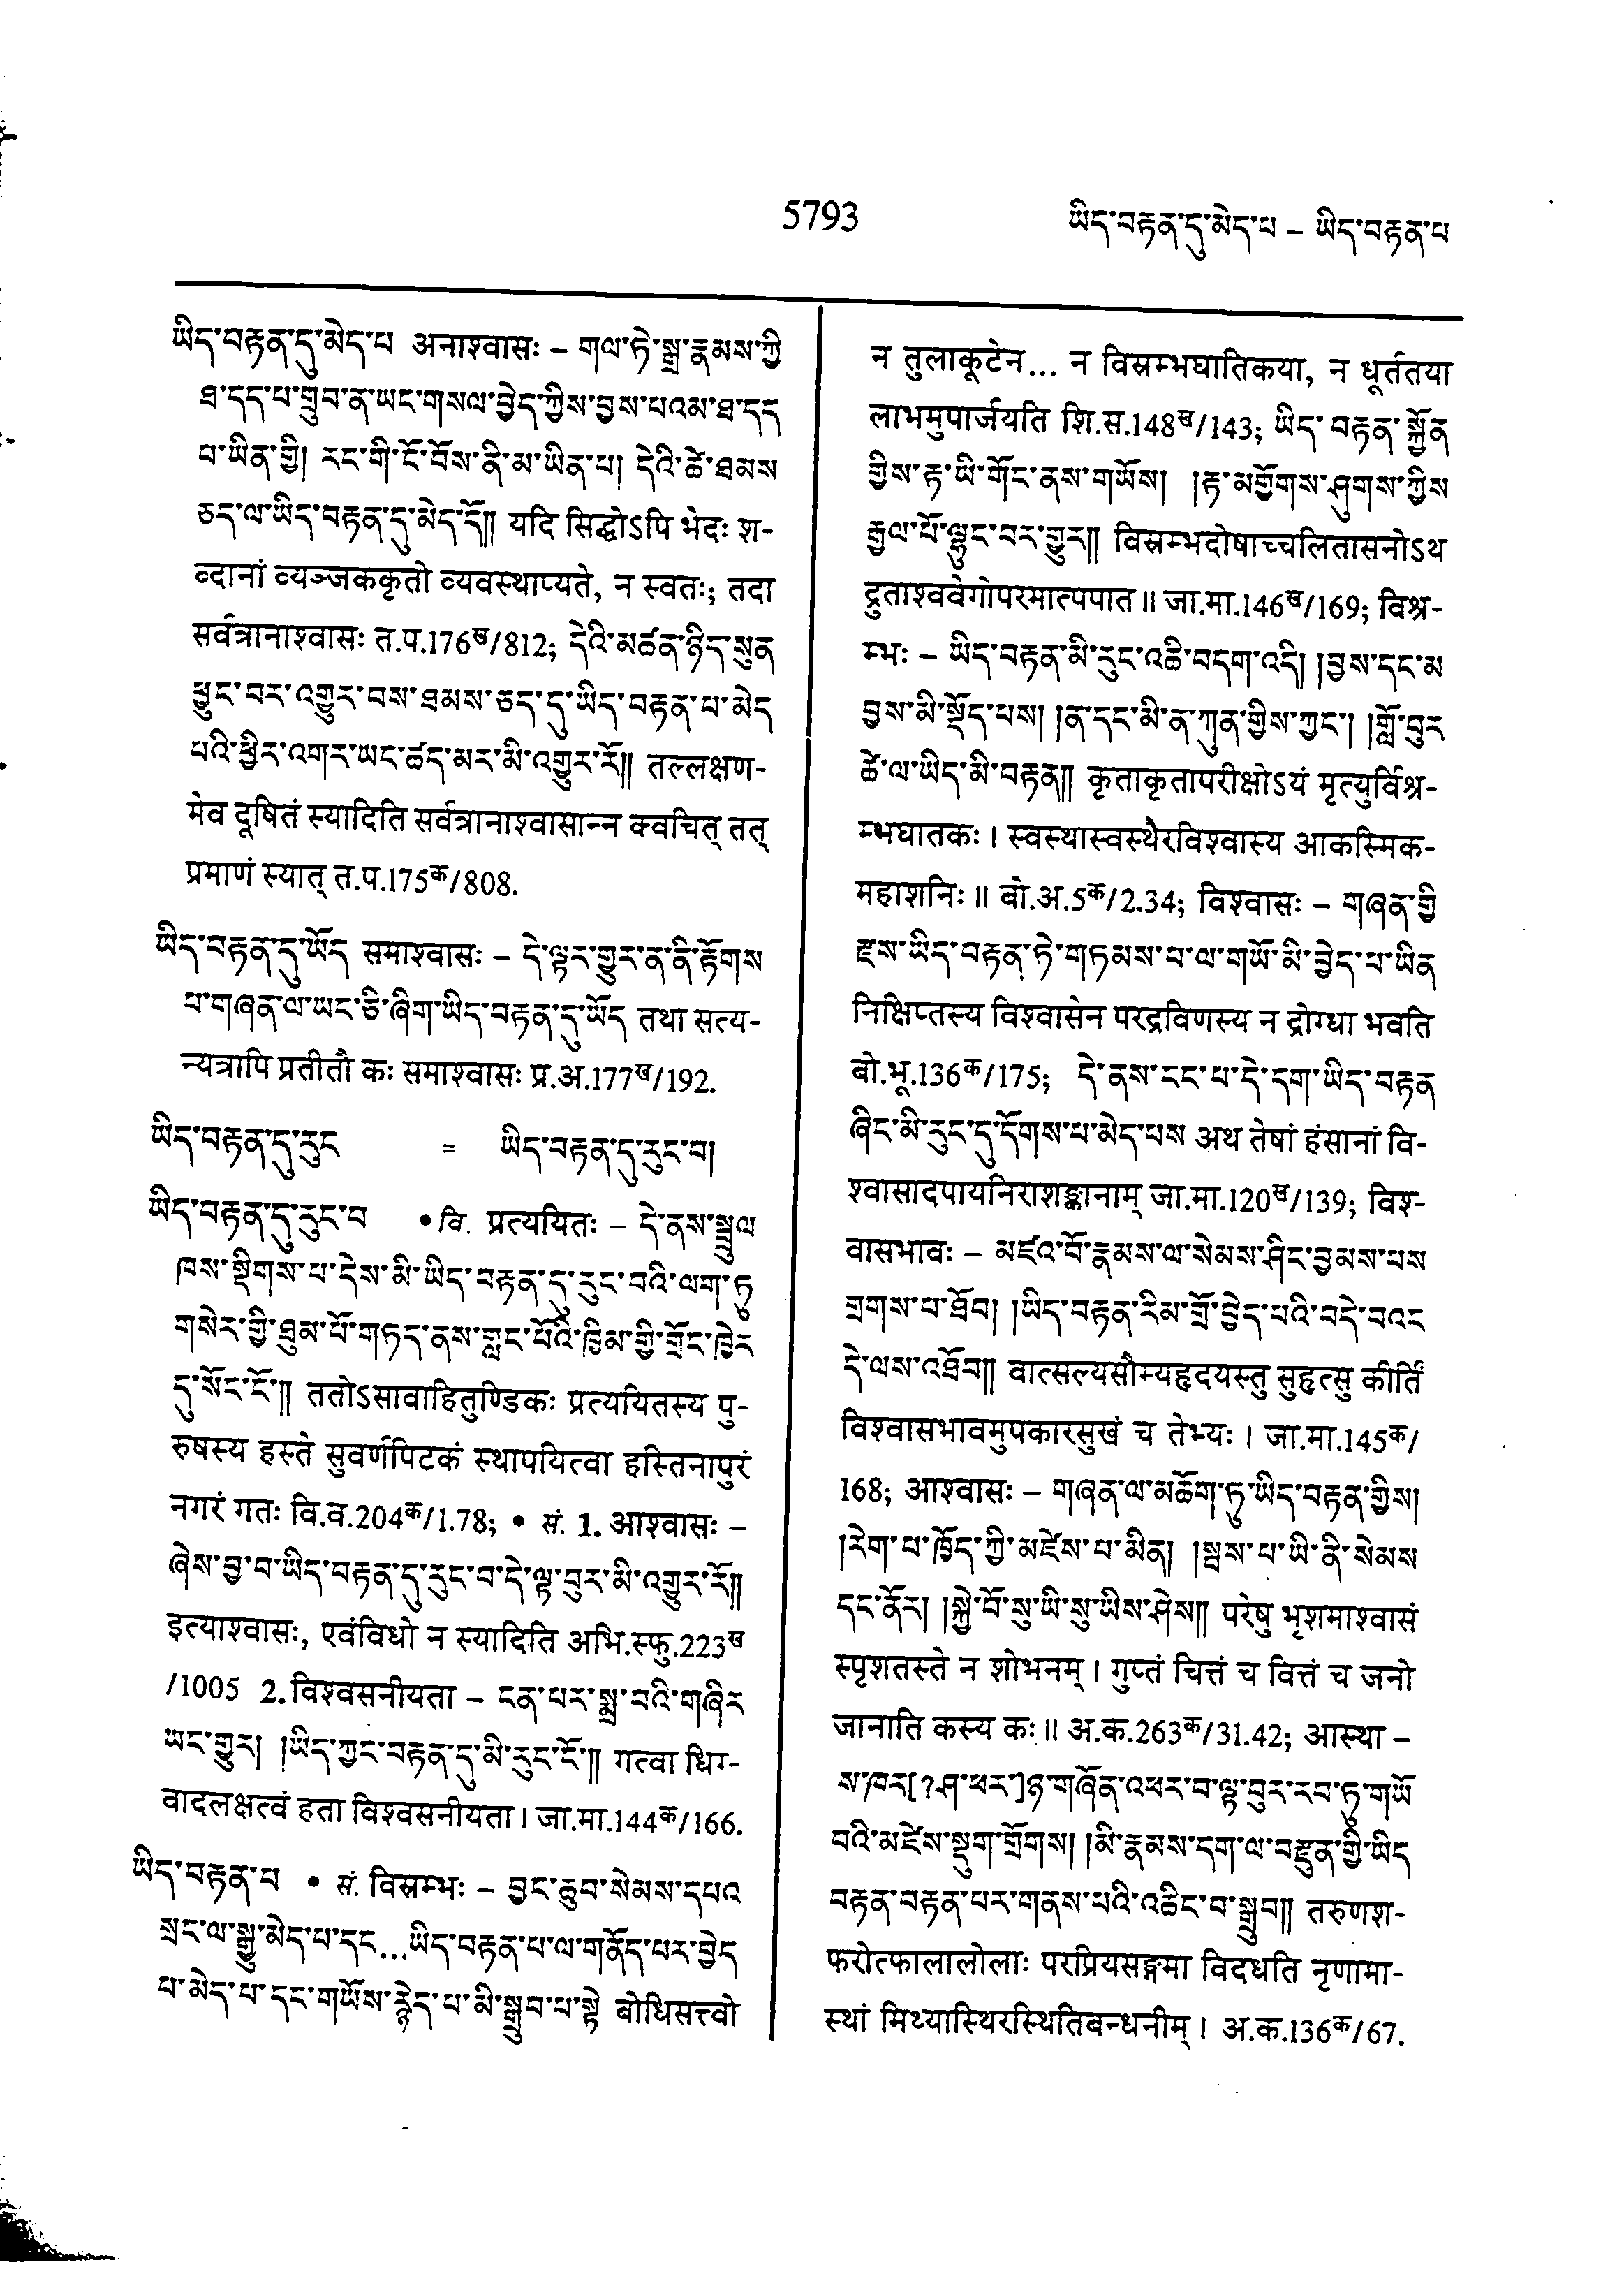 5793
ཡིད་བརྟན་དུ་མེད་པ – ཡིད་བརྟན་པ
ཡིད་བརྟན་དུ་མེད་པ अनाश्वासः – གལ་ཏེ་སྒྲ་རྣམས་ཀྱི
ཐ་དད་པ་གྲུབ་ན་ཡང་གསལ་བྱེད་ཀྱིས་བྱས་པའམ་ཐ་དད
པ་ཡིན་གྱི། རང་གི་ངོ་བོས་ནི་མ་ཡིན་པ། དེའི་ཚེ་ཐམས
ཅད་ལ་ཡིད་བརྟན་དུ་མེད་དོ།། यदि सिद्धोऽपि भेदः श-
ब्दानां व्यञ्जककृतो व्यवस्थाप्यते, न स्वतः; तदा
सर्वत्रानाश्वासः त.प.176ख/812; དེའི་མཚན་ཉིད་སུན
ཕྱུང་བར་འགྱུར་བས་ཐམས་ཅད་དུ་ཡིད་བརྟན་པ་མེད
པའི་ཕྱིར་འགར་ཡང་ཚད་མར་མི་འགྱུར་རོ།། तल्लक्षण-
मेव दूषितं स्यादिति सर्वत्रानाश्वासान्न क्वचित् तत्
प्रमाणं स्यात् त.प.175क/808.
ཡིད་བརྟན་དུ་ཡོད समाश्वासः – དེ་ལྟར་གྱུར་ན་ནི་རྟོགས
པ་གཞན་ལ་ཡང་ཅི་ཞིག་ཡིད་བརྟན་དུ་ཡོད तथा सत्य-
न्यत्रापि प्रतीतौ कः समाश्वासः प्र.अ.177ख/192.
ཡིད་བརྟན་དུ་རུང = ཡིད་བརྟན་དུ་རུང་བ།
ཡིད་བརྟན་དུ་རུང་བ • वि. प्रत्ययितः – དེ་ནས་སྦྲུལ
ཁས་སྡིགས་པ་དེས་མི་ཡིད་བརྟན་དུ་རུང་བའི་ལག་ཏུ
གསེར་གྱི་ཐུམ་པོ་གཏད་ནས་གླང་པོའི་ཁྱིམ་གྱི་གྲོང་ཁྱེར
དུ་སོང་ངོ༌།། ततोऽसावाहितुण्डिकः प्रत्ययितस्य पु-
रुषस्य हस्ते सुवर्णपिटकं स्थापयित्वा हस्तिनापुरं
नगरं गतः वि.व.204क/1.78; • सं. 1. आश्वासः –
ཞེས་བྱ་བ་ཡིད་བརྟན་དུ་རུང་བ་དེ་ལྟ་བུར་མི་འགྱུར་རོ།།
इत्याश्वासः, एवंविधो न स्यादिति अभि.स्फु.223ख
/1005 2. विश्वसनीयता – ངན་པར་སྨྲ་བའི་གཞིར
ཡང་གྱུར། །ཡིད་ཀྱང་བརྟན་དུ་མི་རུང་ངོ༌།། गत्वा धिग्-
वादलक्षत्वं हता विश्वसनीयता। जा.मा.144क/166.
ཡིད་བརྟན་པ • सं. विस्रम्भः – བྱང་ཆུབ་སེམས་དཔའ
སྲང་ལ་སྒྱུ་མེད་པ་དང...ཡིད་བརྟན་པ་ལ་གནོད་པར་བྱེད
པ་མེད་པ་དང་གཡོས་རྙེད་པ་མི་སྒྲུབ་པ་སྟེ बोधिसत्त्वो
न तुलाकूटेन... न विस्रम्भघातिकया, न धूर्ततया
लाभमुपार्जयति शि.स.148ख/143; ཡིད་བརྟན་སྐྱོན
གྱིས་རྟ་ཡི་གོང་ནས་གཡོས། །རྟ་མགྱོགས་ཤུགས་ཀྱིས
རྒྱལ་པོ་ལྷུང་བར་གྱུར།། विस्रम्भदोषाच्चलितासनोऽथ
द्रुताश्ववेगोपरमात्पपात॥ जा.मा.146ख/169; विश्र-
म्भः – ཡིད་བརྟན་མི་རུང་འཆི་བདག་འདི། །བྱས་དང་མ
བྱས་མི་སྡོད་པས། །ན་དང་མི་ན་ཀུན་གྱིས་ཀྱང༌། །གློ་བུར
ཚེ་ལ་ཡིད་མི་བརྟན།། कृताकृतापरीक्षोऽयं मृत्युर्विश्र-
म्भघातकः। स्वस्थास्वस्थैरविश्वास्य आकस्मिक-
महाशनिः॥ बो.अ.5क/2.34; विश्वासः – གཞན་གྱི
རྫས་ཡིད་བརྟན་ཏེ་གཏམས་པ་ལ་གཡོ་མི་བྱེད་པ་ཡིན
निक्षिप्तस्य विश्वासेन परद्रविणस्य न द्रोग्धा भवति
बो.भू.136क/175; དེ་ནས་ངང་པ་དེ་དག་ཡིད་བརྟན
ཞིང་མི་རུང་དུ་དོགས་པ་མེད་པས अथ तेषां हंसानां वि-
श्वासादपायनिराशङ्कानाम् जा.मा.120ख/139; विश्-
वासभावः – མཛའ་བོ་རྣམས་ལ་སེམས་ཤིང་བྱམས་པས
གྲགས་པ་ཐོབ། །ཡིད་བརྟན་རིམ་གྲོ་བྱེད་པའི་བདེ་བའང
དེ་ལས་འཐོབ།། वात्सल्यसौम्यहृदयस्तु सुहृत्सु कीर्तिं
विश्वासभावमुपकारसुखं च तेभ्यः। जा.मा.145क/
168; आश्वासः – གཞན་ལ་མཆོག་ཏུ་ཡིད་བརྟན་གྱིས།
།རེག་པ་ཁྱོད་ཀྱི་མཛེས་པ་མིན། །སྦས་པ་ཡི་ནི་སེམས
དང་ནོར། །སྐྱེ་བོ་སུ་ཡི་སུ་ཡིས་ཤེས།། परेषु भृशमाश्वासं
स्पृशतस्ते न शोभनम्। गुप्तं चित्तं च वित्तं च जनो
जानाति कस्य कः॥ अ.क.263क/31.42; आस्था –
ས་ཁར[?ཤ་ཕར་]ཉ་གཞོན་འཕར་བ་ལྟ་བུར་རབ་ཏུ་གཡོ
བའི་མཛེས་སྡུག་གྲོགས། །མི་རྣམས་དག་ལ་བརྫུན་གྱི་ཡིད
བརྟན་བརྟན་པར་གནས་པའི་འཆིང་བ་སྒྲུབ།། तरुणश-
फरोत्फालालोलाः परप्रियसङ्गमा विदधति नृणामा-
स्थां मिथ्यास्थिरस्थितिबन्धनीम्। अ.क.136क/67.